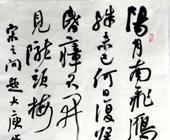 陽月南飛鴈
殊未已何日復歸
昏瘴不開
見隴頭梅
宋之问题大庾